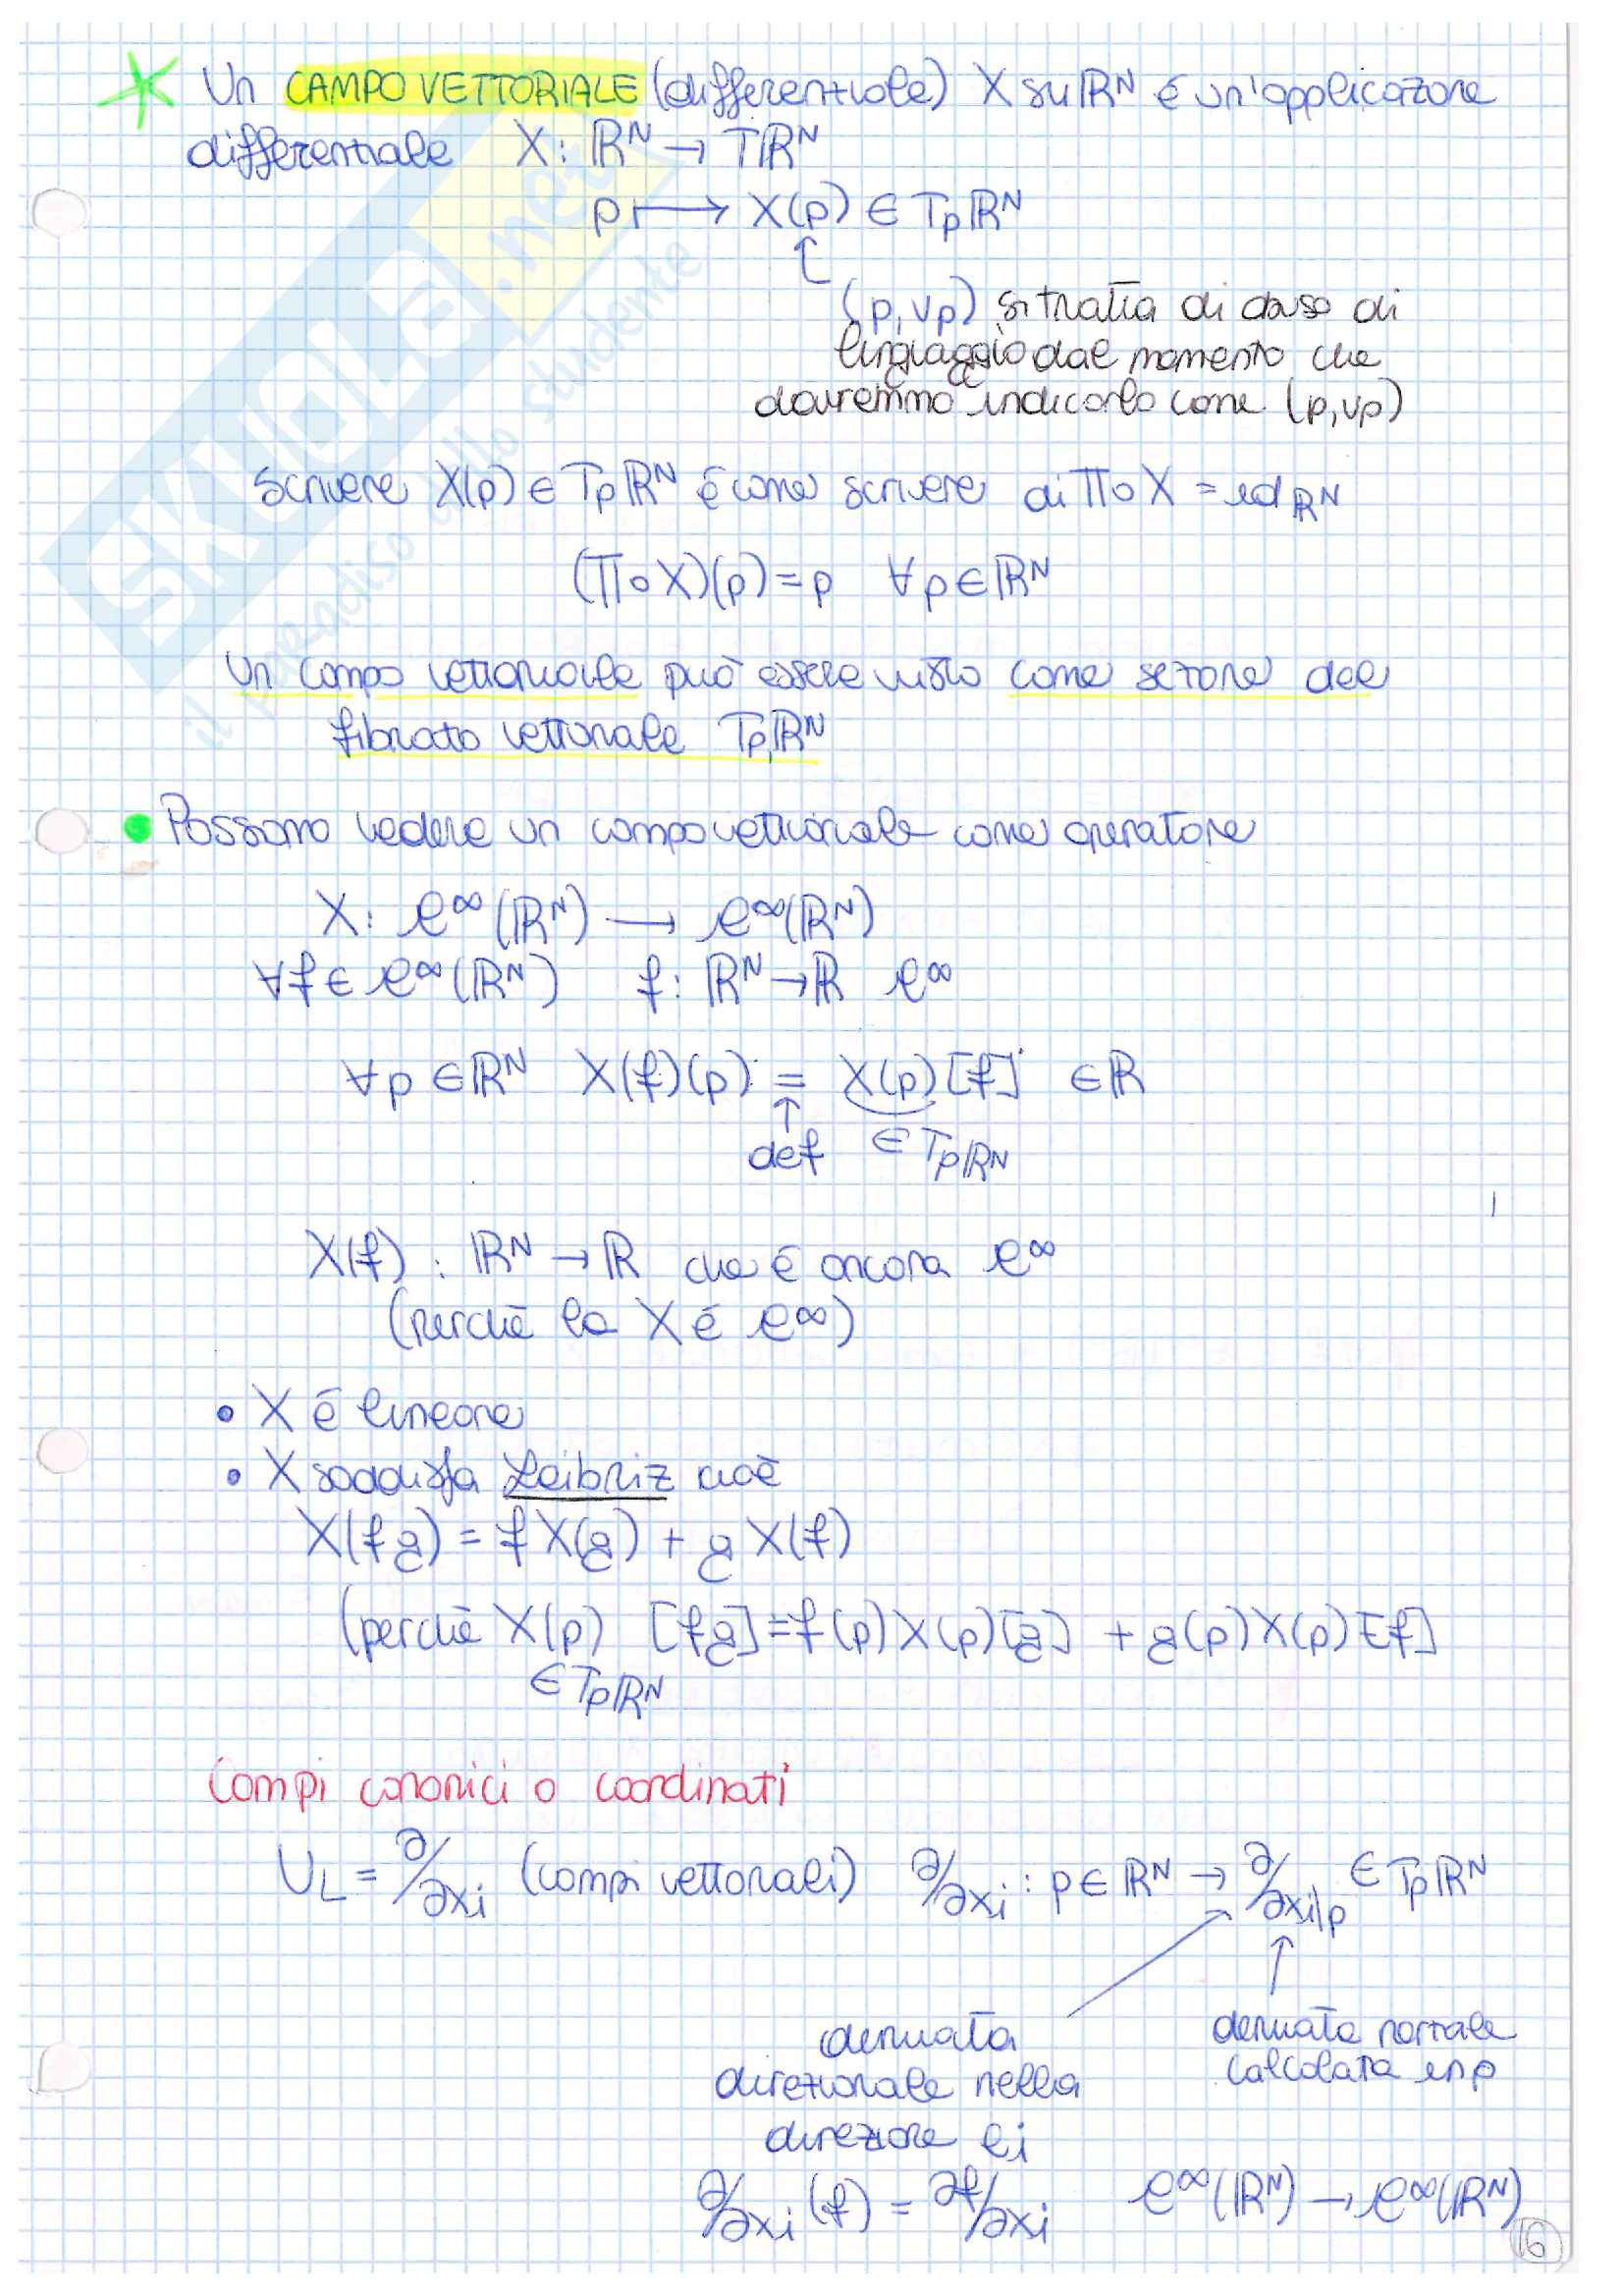 Un CAMPO VETTORIALE (differenziale) X su ℝᴺ è un'applicazione
differenziale X: ℝᴺ → Tℝᴺ
p ⟼ X(p) ∈ Tpℝᴺ
(p, vp) si tratta di abuso di
linguaggio dal momento che
dovremmo indicarlo come (p, vp)
Scrivere X(p) ∈ Tpℝᴺ è come scrivere di Π∘X = id ℝᴺ
(Π∘X)(p) = p ∀p∈ℝᴺ
Un campo vettoriale può essere visto come sezione del
fibrato vettoriale Tpℝᴺ
Possiamo vedere un campo vettoriale come operatore
X: C^∞(ℝᴺ) → C^∞(ℝᴺ)
∀f ∈ C^∞(ℝᴺ) f: ℝᴺ → ℝ C^∞
∀p ∈ ℝᴺ X(f)(p) = X(p)[f] ∈ ℝ
def ∈ Tpℝᴺ
X(f) : ℝᴺ → ℝ che è ancora C^∞
(perchè la X è C^∞)
• X è lineare
• X soddisfa Leibniz cioè
X(fg) = f X(g) + g X(f)
(perchè X(p) [fg] = f(p)X(p)[g] + g(p)X(p)[f]
∈ Tpℝᴺ
Campi canonici o coordinati
U_L = ∂/∂xi (campi vettoriali) ∂/∂xi : p∈ℝᴺ → ∂/∂xi|p ∈ Tpℝᴺ
derivata
direzionale nella
direzione ei
derivata parziale
calcolata in p
∂/∂xi (f) = ∂f/∂xi C^∞(ℝᴺ) → C^∞(ℝᴺ)
16
SKUOLA.net
il paradiso dello studente